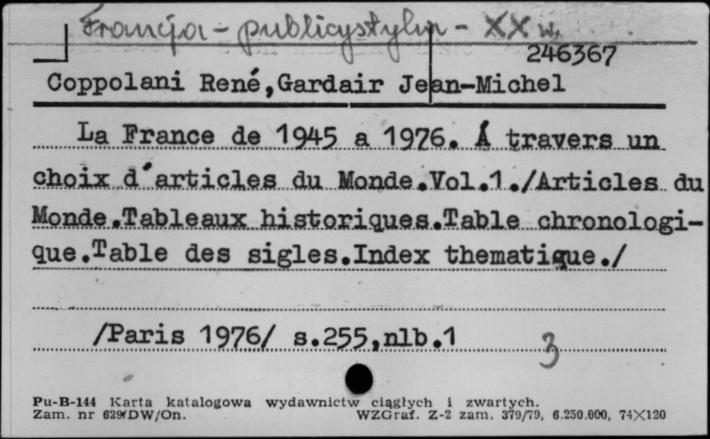 Francja - publicystyka - XX w.
246367
Coppolani René,Gardair Jean-Michel
La France de 1945 a 1976. Á travers un
choix d'articles du Monde.Vol.1./Articles du
Monde.Tableaux historiques.Table chronologi-
que.Table des sigles.Index thematique./
/Paris 1976/ s.255,nlb.1
3
Pu-B-144 Karta katalogowa wydawnictw ciągłych i zwartych.
Zam. nr 629/DW/On. WZGraf. Z-2 zam. 379/79, 6.250.000, 74×120